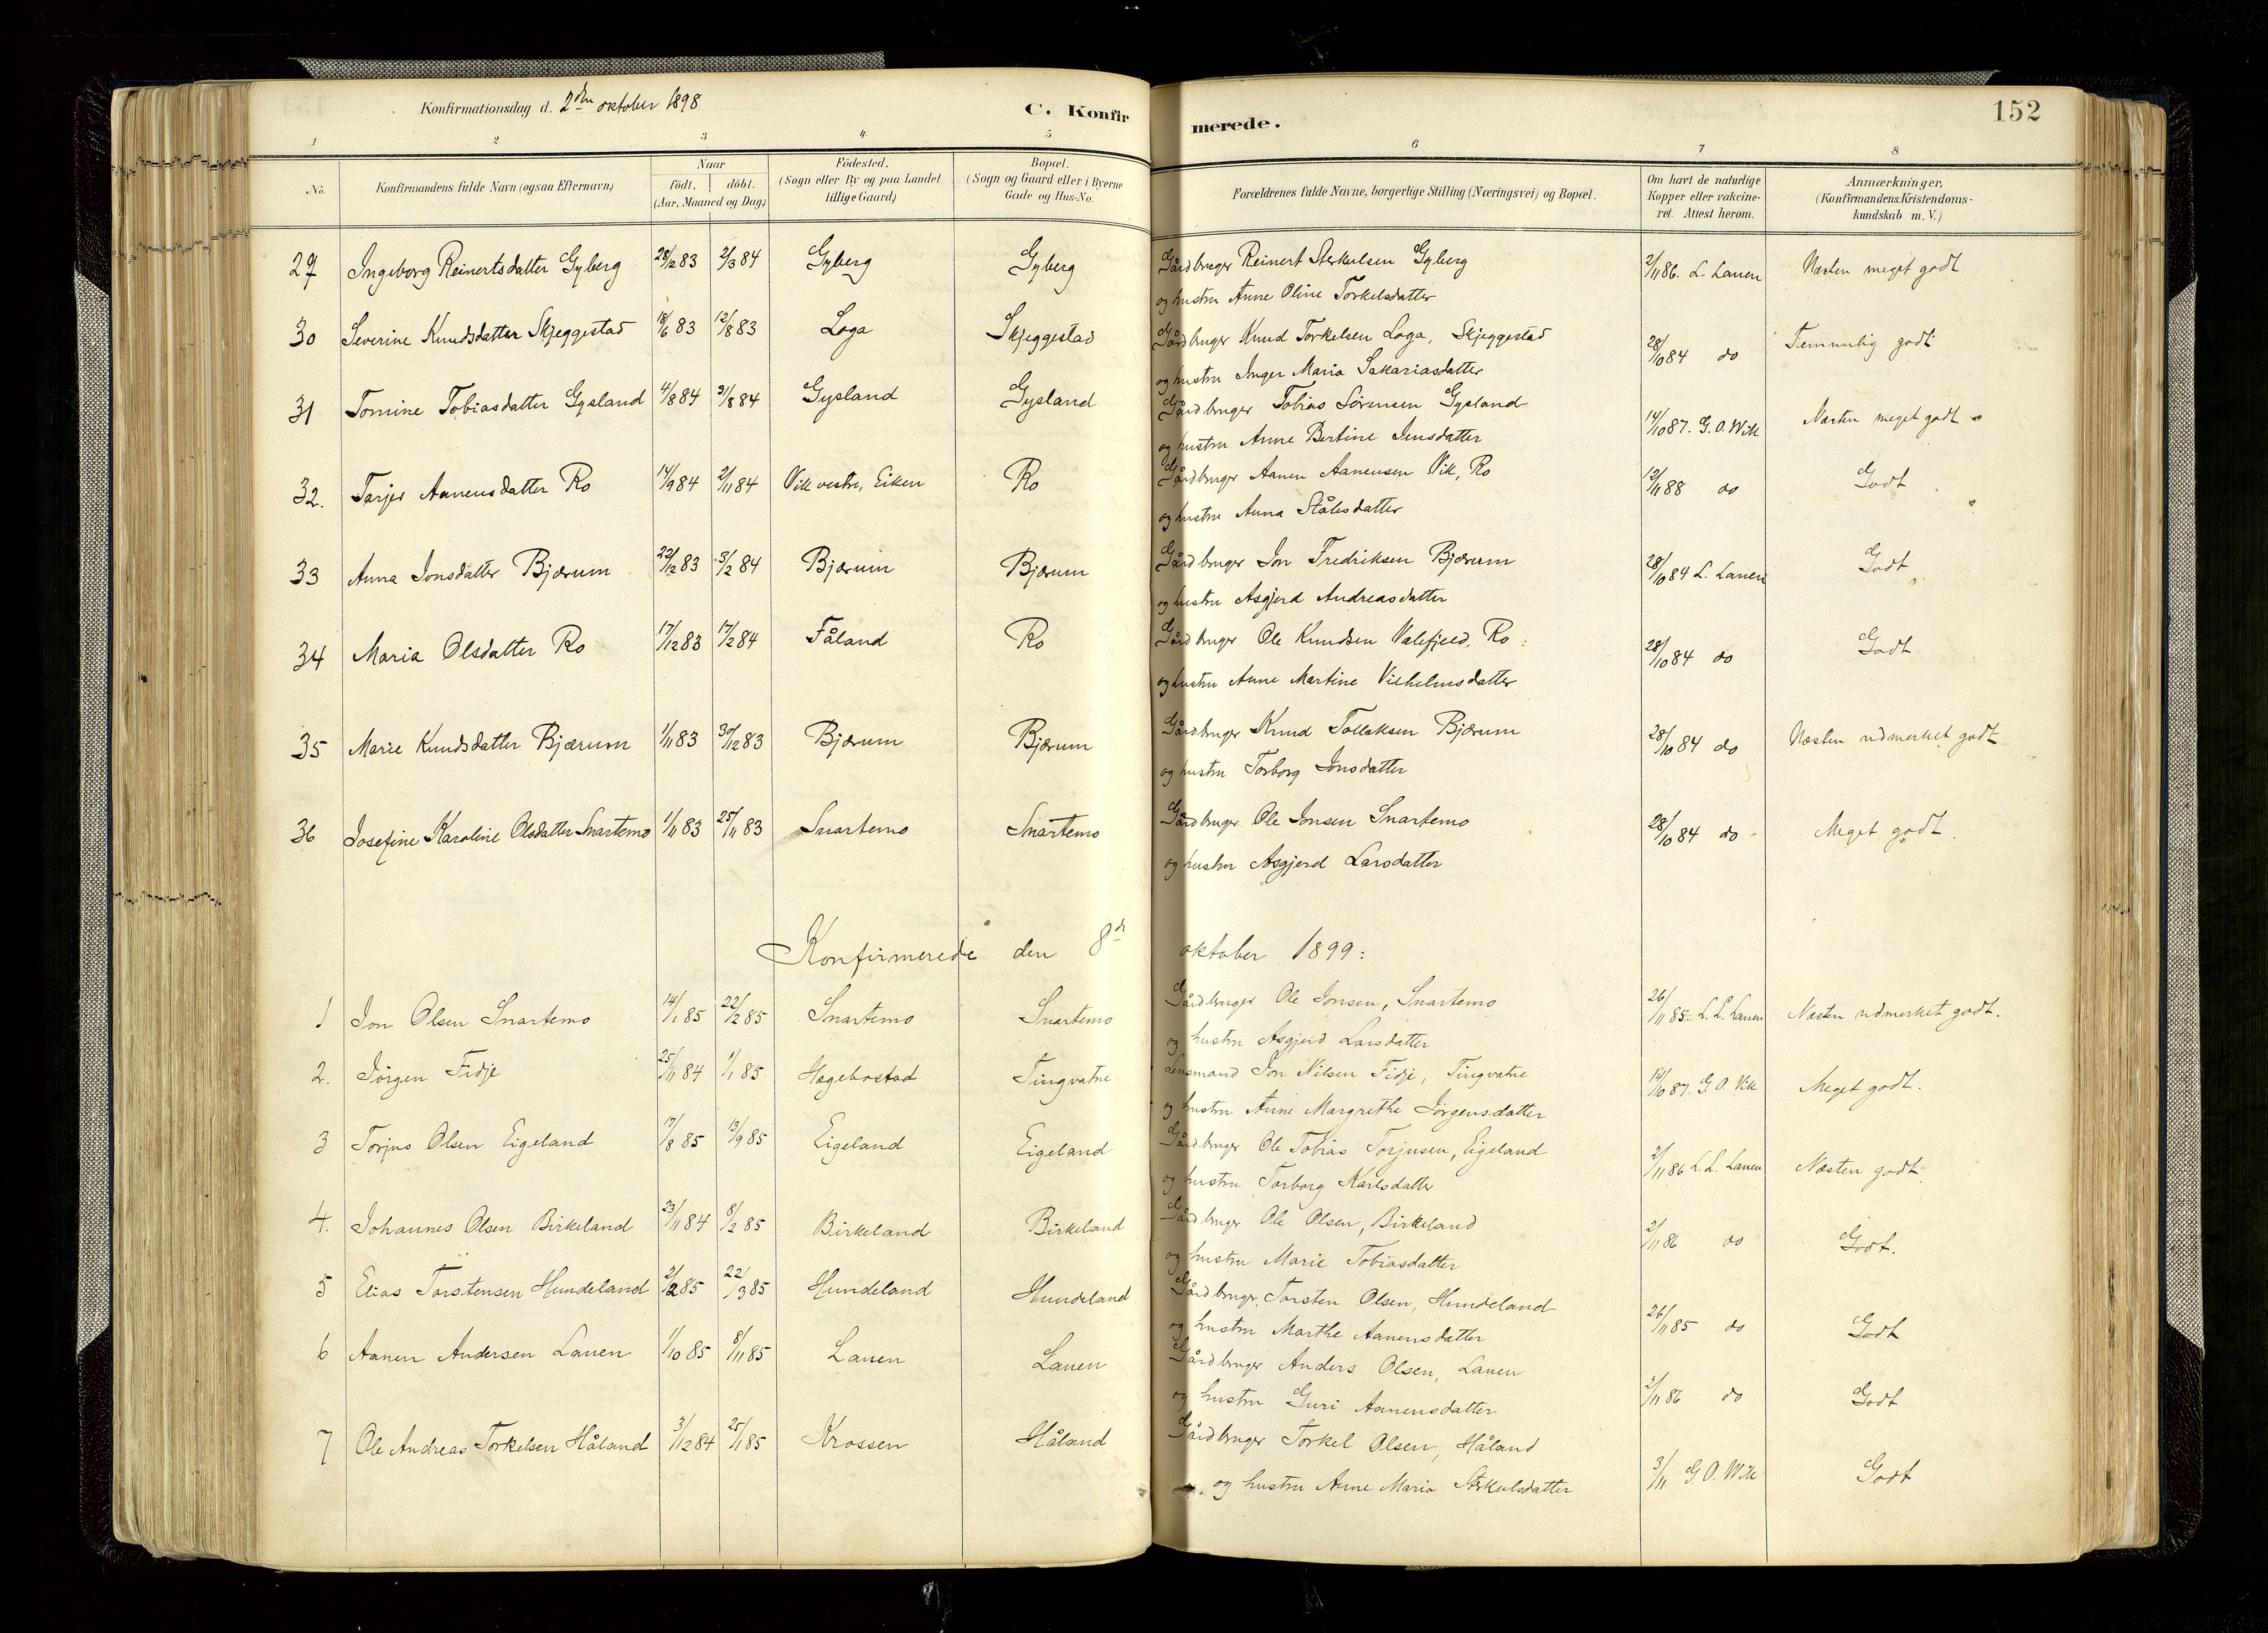 Konfirmationsdag d. 2den oktober 1898
C. Konfirmerede.
152
1 2 3 4 5 6 7 8
No.
Konfirmandens fulde Navn (ogsaa Efternavn)
Naar
födt. döbt.
(Aar, Maaned og Dag)
Födested.
(Sogn eller By og paa Landet
tillige Gaard)
Bopæl.
(Sogn og Gaard eller i Byerne
Gade og Hus-No.
Forældrenes fulde Navne, borgerlige Stilling (Næringsvei) og Bopæl.
Om havt de naturlige
Kopper eller vakcine-
ret. Attest herom.
Anmærkninger.
(Konfirmandens Kristendoms-
kundskab m. V.)
29 Ingeborg Reinertsdatter Gyberg 28/12 83 2/3 84 Gyberg Gyberg Gårdbruger Reinert Sterkulsen Gyberg 2/11 86. L. Lauen Næsten meget godt
og hustru Anne Oline Torkelsdatter
30 Severine Knudsdatter Skjeggestad 18/6 83 12/8 83 Loga Skjeggestad Gårdbruger Knud Torkelsen Loga, Skjeggestad 28/10 84 do Temmelig godt
og hustru Inger Maria Sakariasdatter
31 Tomine Tobiasdatter Gysland 4/8 84 31/8 84 Gysland Gysland Gårdbruger Tobias Sörensen Gysland 14/10 87. G. O. Wik Næsten meget godt
og hustru Anne Bertine Jensdatter
32. Tarjer Aanensdatter Ro 14/9 84 2/11 84 Vik vestre, Eiken Ro Gårdbruger Aanen Aanensen Vik, Ro 12/11 88 do Godt
og hustru Anna Ståles datter
33 Anna Jonsdatter Bjærum 22/12 83 3/2 84 Bjærum Bjærum Gårdbruger Jon Fredriksen Bjærum 28/10 84 L. Lauen Godt
og hustru Asgjerd Andreasdatter
34 Maria Olsdatter Ro 17/12 83 17/2 84 Fåland Ro Gårdbruger Ole Knudsen Valefjeld, Ro 28/10 84 do Godt
og hustru Anne Martine Vilhelmsdatter
35 Marie Knudsdatter Bjærum 1/11 83 30/12 83 Bjærum Bjærum Gårdbruger Knud Tollaksen Bjærum 28/10 84 do Næsten udmerket godt
og hustru Torborg Jonsdatter
36 Josefine Karoline Olsdatter Snartemo 1/11 83 25/11 83 Snartemo Snartemo Gårdbruger Ole Jonsen Snartemo 28/10 84 do Meget godt.
og hustru Asgjerd Larsdatter
Konfirmerede den 8de oktober 1899:
1 Jon Olsen Snartemo 14/1 85 22/2 85 Snartemo Snartemo Gårdbruger Ole Jonsen, Snartemo 26/11 85. L. L. Lauen Næsten udmerket godt.
og hustru Asgjerd Larsdatter
2. Jörgen Fidje 25/11 84 1/1 85 Hægebostad Tingvatne Lensmand Jon Nilsen Fidje, Tingvatne 14/10 87. G. O. Vik Meget godt.
og hustru Anne Margrethe Jörgensdatter
3 Torjus Olsen Eigeland 17/8 85 13/9 85 Eigeland Eigeland Gårdbruger Ole Tobias Torjusen, Eigeland 2/11 86 L. L. Lauen Næsten godt.
og hustru Torborg Karlsdatter
4. Johannes Olsen Birkeland 23/11 84 8/2 85 Birkeland Birkeland Gårdbruger Ole Olsen, Birkeland 2/11 86 do Godt.
og hustru Marie Tobiasdatter
5 Elias Torstensen Hundeland 2/2 85 22/3 85 Hundeland Hundeland Gårdbruger Torsten Olsen, Hundeland 26/11 85 do Godt
og hustru Marthe Aanensdatter
6 Aanen Andersen Lauen 1/10 85 8/11 85 Lauen Lauen Gårdbruger Anders Olsen, Lauen 2/11 86 do Godt
og hustru Guri Aanensdatter
7 Ole Andreas Torkelsen Håland 3/12 84 25/1 85 Krossen Håland Gårdbruger Torkel Olsen, Håland 3/11 G. O. Wik Godt
og hustru Anne Maria Sterkulsdatter